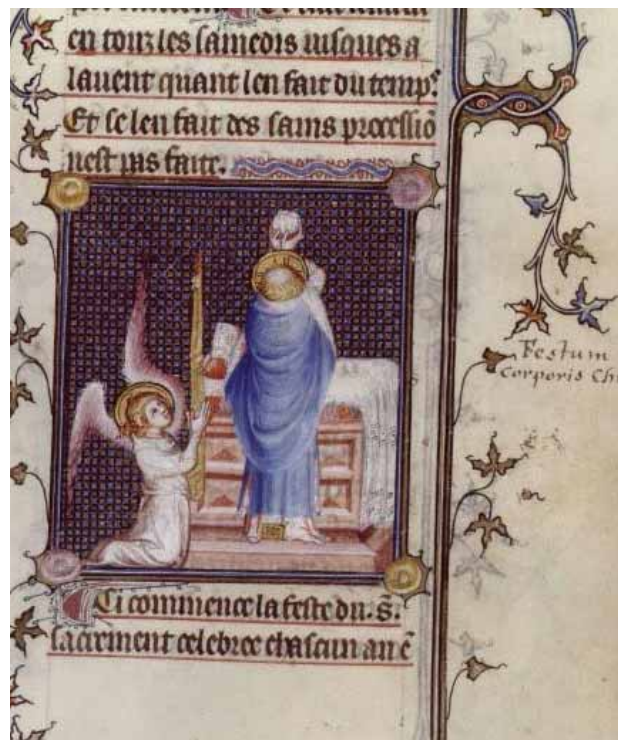 en touz les samedis iusques a
lauent quant len fait du temps.
Et se len fait des sains processiõ
nest pas faite.
Festum
Corporis Ch
Ci commence la feste du .s̃.
sacrement celebree chascun an ẽ